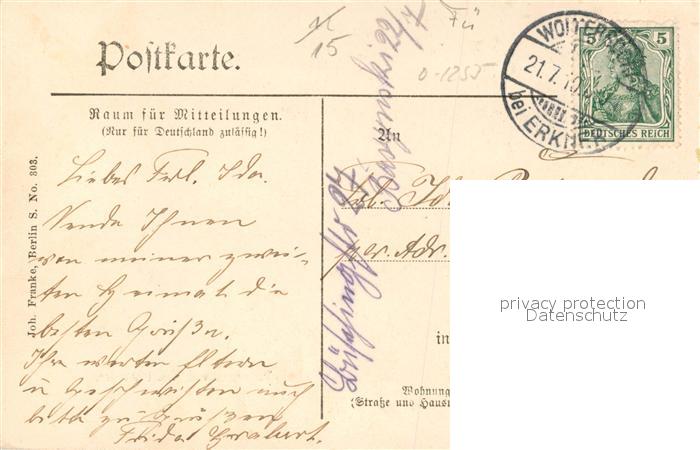 Postkarte.
Raum für Mitteilungen.
(Nur für Deutschland zulässig!)
An
Liebes Frl. Ida.
Sende Ihnen
von meiner zwei-
ten Heimat die
besten Grüße.
Ihre werten Eltern
u Geschwister auch
bitte zu Grüßen
Frida
Frl. Ida
per. Adr.
in
Wohnung
(Straße und Haus
Joh. Franke, Berlin S. No. 303.
15
0-1255
WOLTERSDORF
21.7.10
bei ERKNER
5 5
DEUTSCHES REICH
privacy protection
Datenschutz